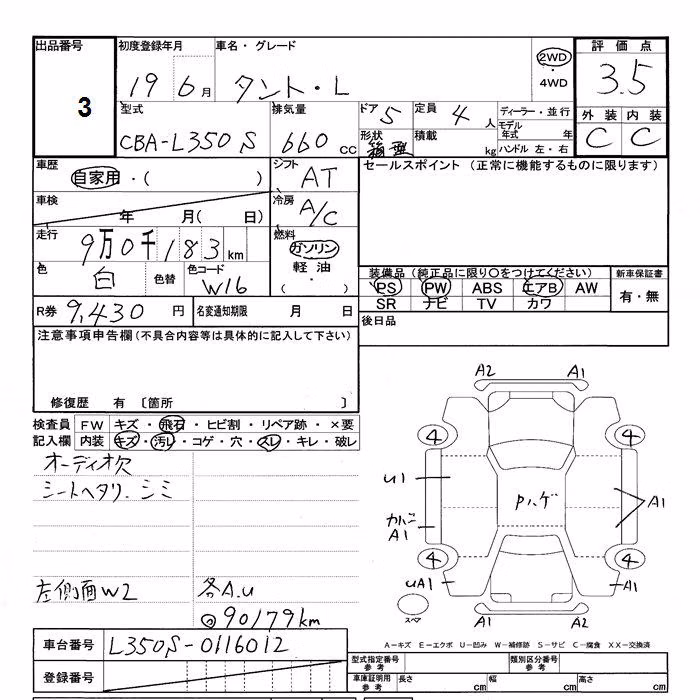 出品番号 初度登録年月 車名・グレード 評価点
3 19 6月 タント・L 2WD・4WD 3.5
型式 排気量 ドア 5 定員 4人 ディーラー・並行 外装 内装
CBA-L350S 660cc 形状 箱型 積載 kg モデル年式 年 C C
ハンドル 左・右
車歴 自家用・( ) シフト AT セールスポイント (正常に機能するものに限ります)
車検 年 月( 日) 冷房 A/C
走行 9万0千183km 燃料 ガソリン 軽油・( )
色 白 色替 色コード W16 装備品 (純正品に限り○をつけてください) 新車保証書
PS PW ABS エアB AW 有・無
R券 9,430円 名変通知期限 月 日 SR ナビ TV カワ
注意事項申告欄(不具合内容等は具体的に記入して下さい) 後日品
修復歴 有 〔箇所 〕
検査員 FW キズ・飛石・ヒビ割・リペア跡・×要
記入欄 内装 キズ・汚レ・コゲ・穴・スレ・キレ・破レ
オーディオ欠
シートヘタリ・シミ
左側面W2 各A.U
◎90179km
A2 A1
4 4
U1 Pハゲ A1
カバーA1
4 4
UA1 A1
スペア A1 A2
A-キズ E-エクボ U-凹み W-補修跡 S-サビ C-腐食 XX-交換済
車台番号 L350S-0116012 型式指定番号 参考 類別区分番号 参考
登録番号 車庫証明用 参考 長さ cm 幅 cm 高さ cm